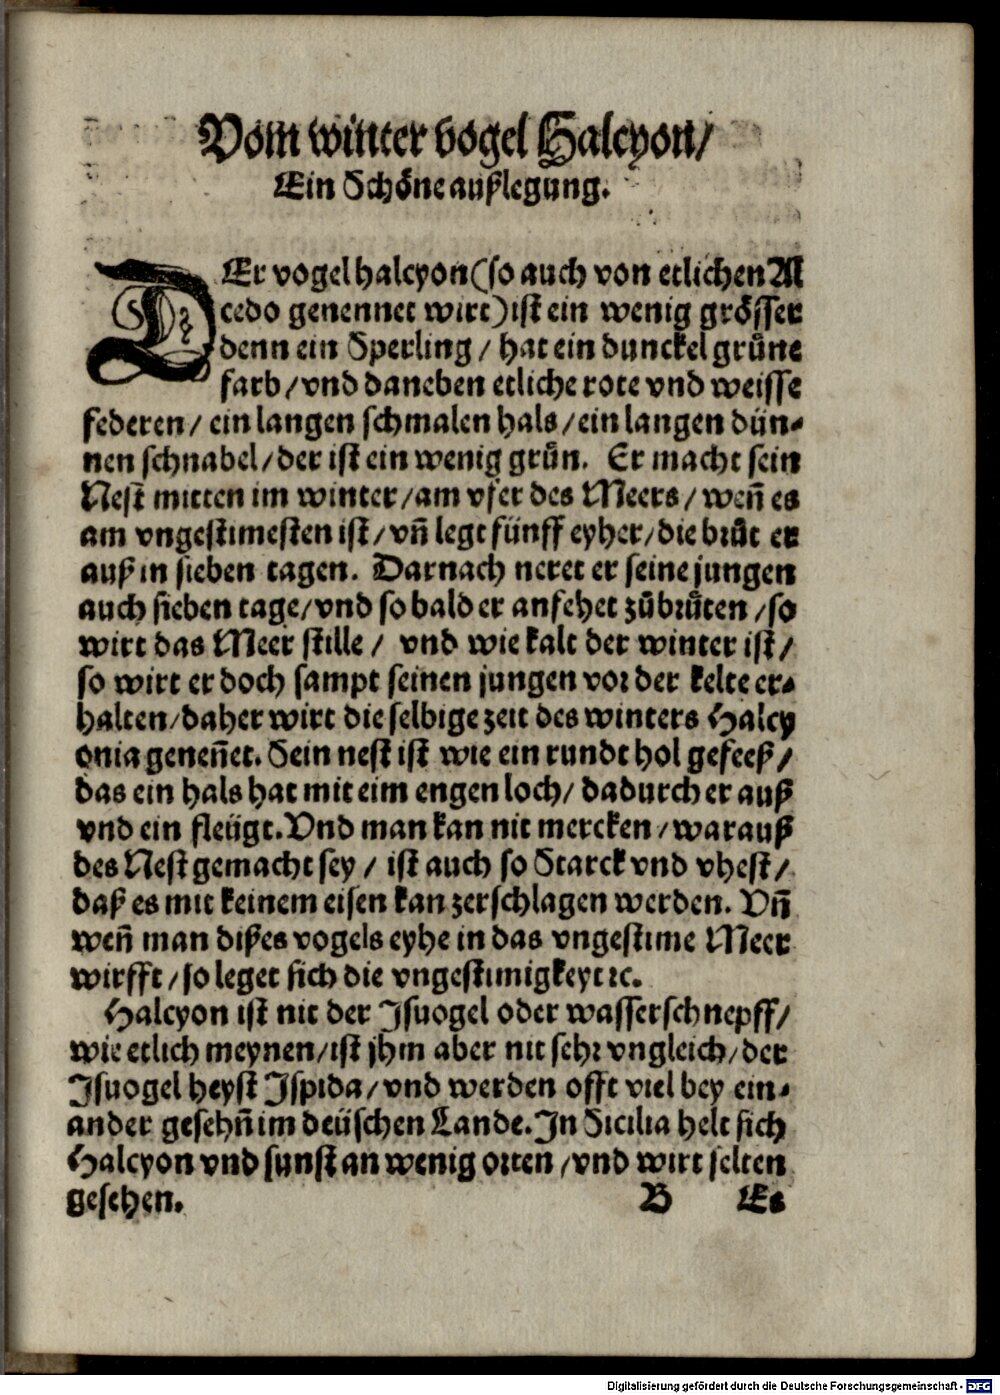 Vom winter vogel Halcyon/
Ein Schöne außlegung.
DEr vogel halcyon (so auch von etlichen Al
cedo genennet wirt) ist ein wenig grösser
denn ein Sperling / hat ein dunckel grůne
farb / vnd daneben etliche rote vnd weisse
federen / ein langen schmalen hals / ein langen dün-
nen schnabel / der ist ein wenig grůn. Er macht sein
Nest mitten im winter / am vfer des Meers / weñ es
am vngestimesten ist / vñ legt fünff eyher / die brůt er
auß in sieben tagen. Darnach neret er seine jungen
auch sieben tage / vnd so bald er anfehet zůbrůten / so
wirt das Meer stille / vnd wie kalt der winter ist /
so wirt er doch sampt seinen jungen vor der kelte er-
halten / daher wirt die selbige zeit des winters Halcy
onia geneñet. Sein nest ist wie ein rundt hol gefeeß /
das ein hals hat mit eim engen loch / dadurch er auß
vnd ein fleügt. Vnd man kan nit mercken / warauß
des Nest gemacht sey / ist auch so Starck vnd vhest /
daß es mit keinem eisen kan zerschlagen werden. Vñ
weñ man dißes vogels eyhe in das vngestime Meer
wirfft / so leget sich die vngestimigkeyt ꝛc.
Halcyon ist nit der Jsuogel oder wasserschnepff /
wie etlich meynen / ist jhm aber nit sehr vngleich / der
Jsuogel heyst Jspida / vnd werden offt viel bey ein-
ander gesehñ im deüschen Lande. Jn Sicilia helt sich
Halcyon vnd sunst an wenig orten / vnd wirt selten
gesehen. B Es
Digitalisierung gefördert durch die Deutsche Forschungsgemeinschaft - DFG